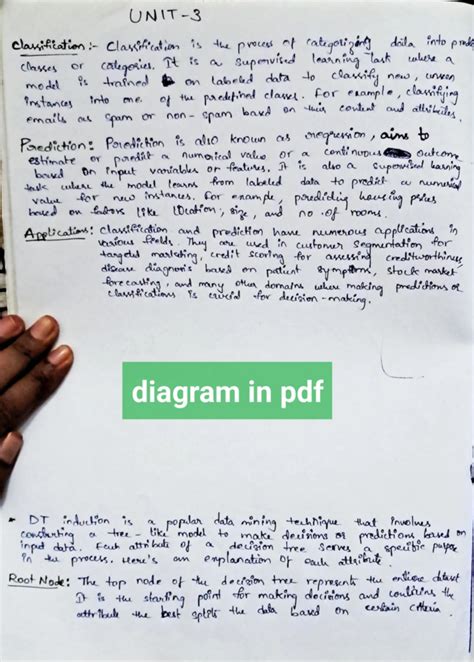 UNIT-3
Classification :- Classification is the process of categorizing data into pred
classes or categories. It is a supervised learning task where a
model is trained on labeled data to classify new, unseen
instances into one of the predefined classes. For example, classifying
emails as spam or non-spam based on their content and attributes.
Prediction : Prediction is also known as regression, aims to
estimate or predict a numerical value or a continuous outcome
based on input variables or features. It is also a supervised learning
task where the model learns from labeled data to predict a numerical
value for new instances. For example, predicting housing prices
based on factors like location, size, and no. of rooms.
Applications: Classification and prediction have numerous applications in
various fields. They are used in customer segmentation for
targeted marketing, credit scoring for assessing creditworthiness,
disease diagnosis based on patient symptoms, stock market
forecasting, and many other domains where making predictions or
classifications is crucial for decision-making.
diagram in pdf
DT induction is a popular data mining technique that involves
constructing a tree-like model to make decisions or predictions based on
input data. Each attribute of a decision tree serves a specific purpose
in the process. Here's an explanation of each attribute.
Root Node: The top node of the decision tree represents the entire dataset
It is the starting point for making decisions and contains the
attribute the best splits the data based on certain criteria.